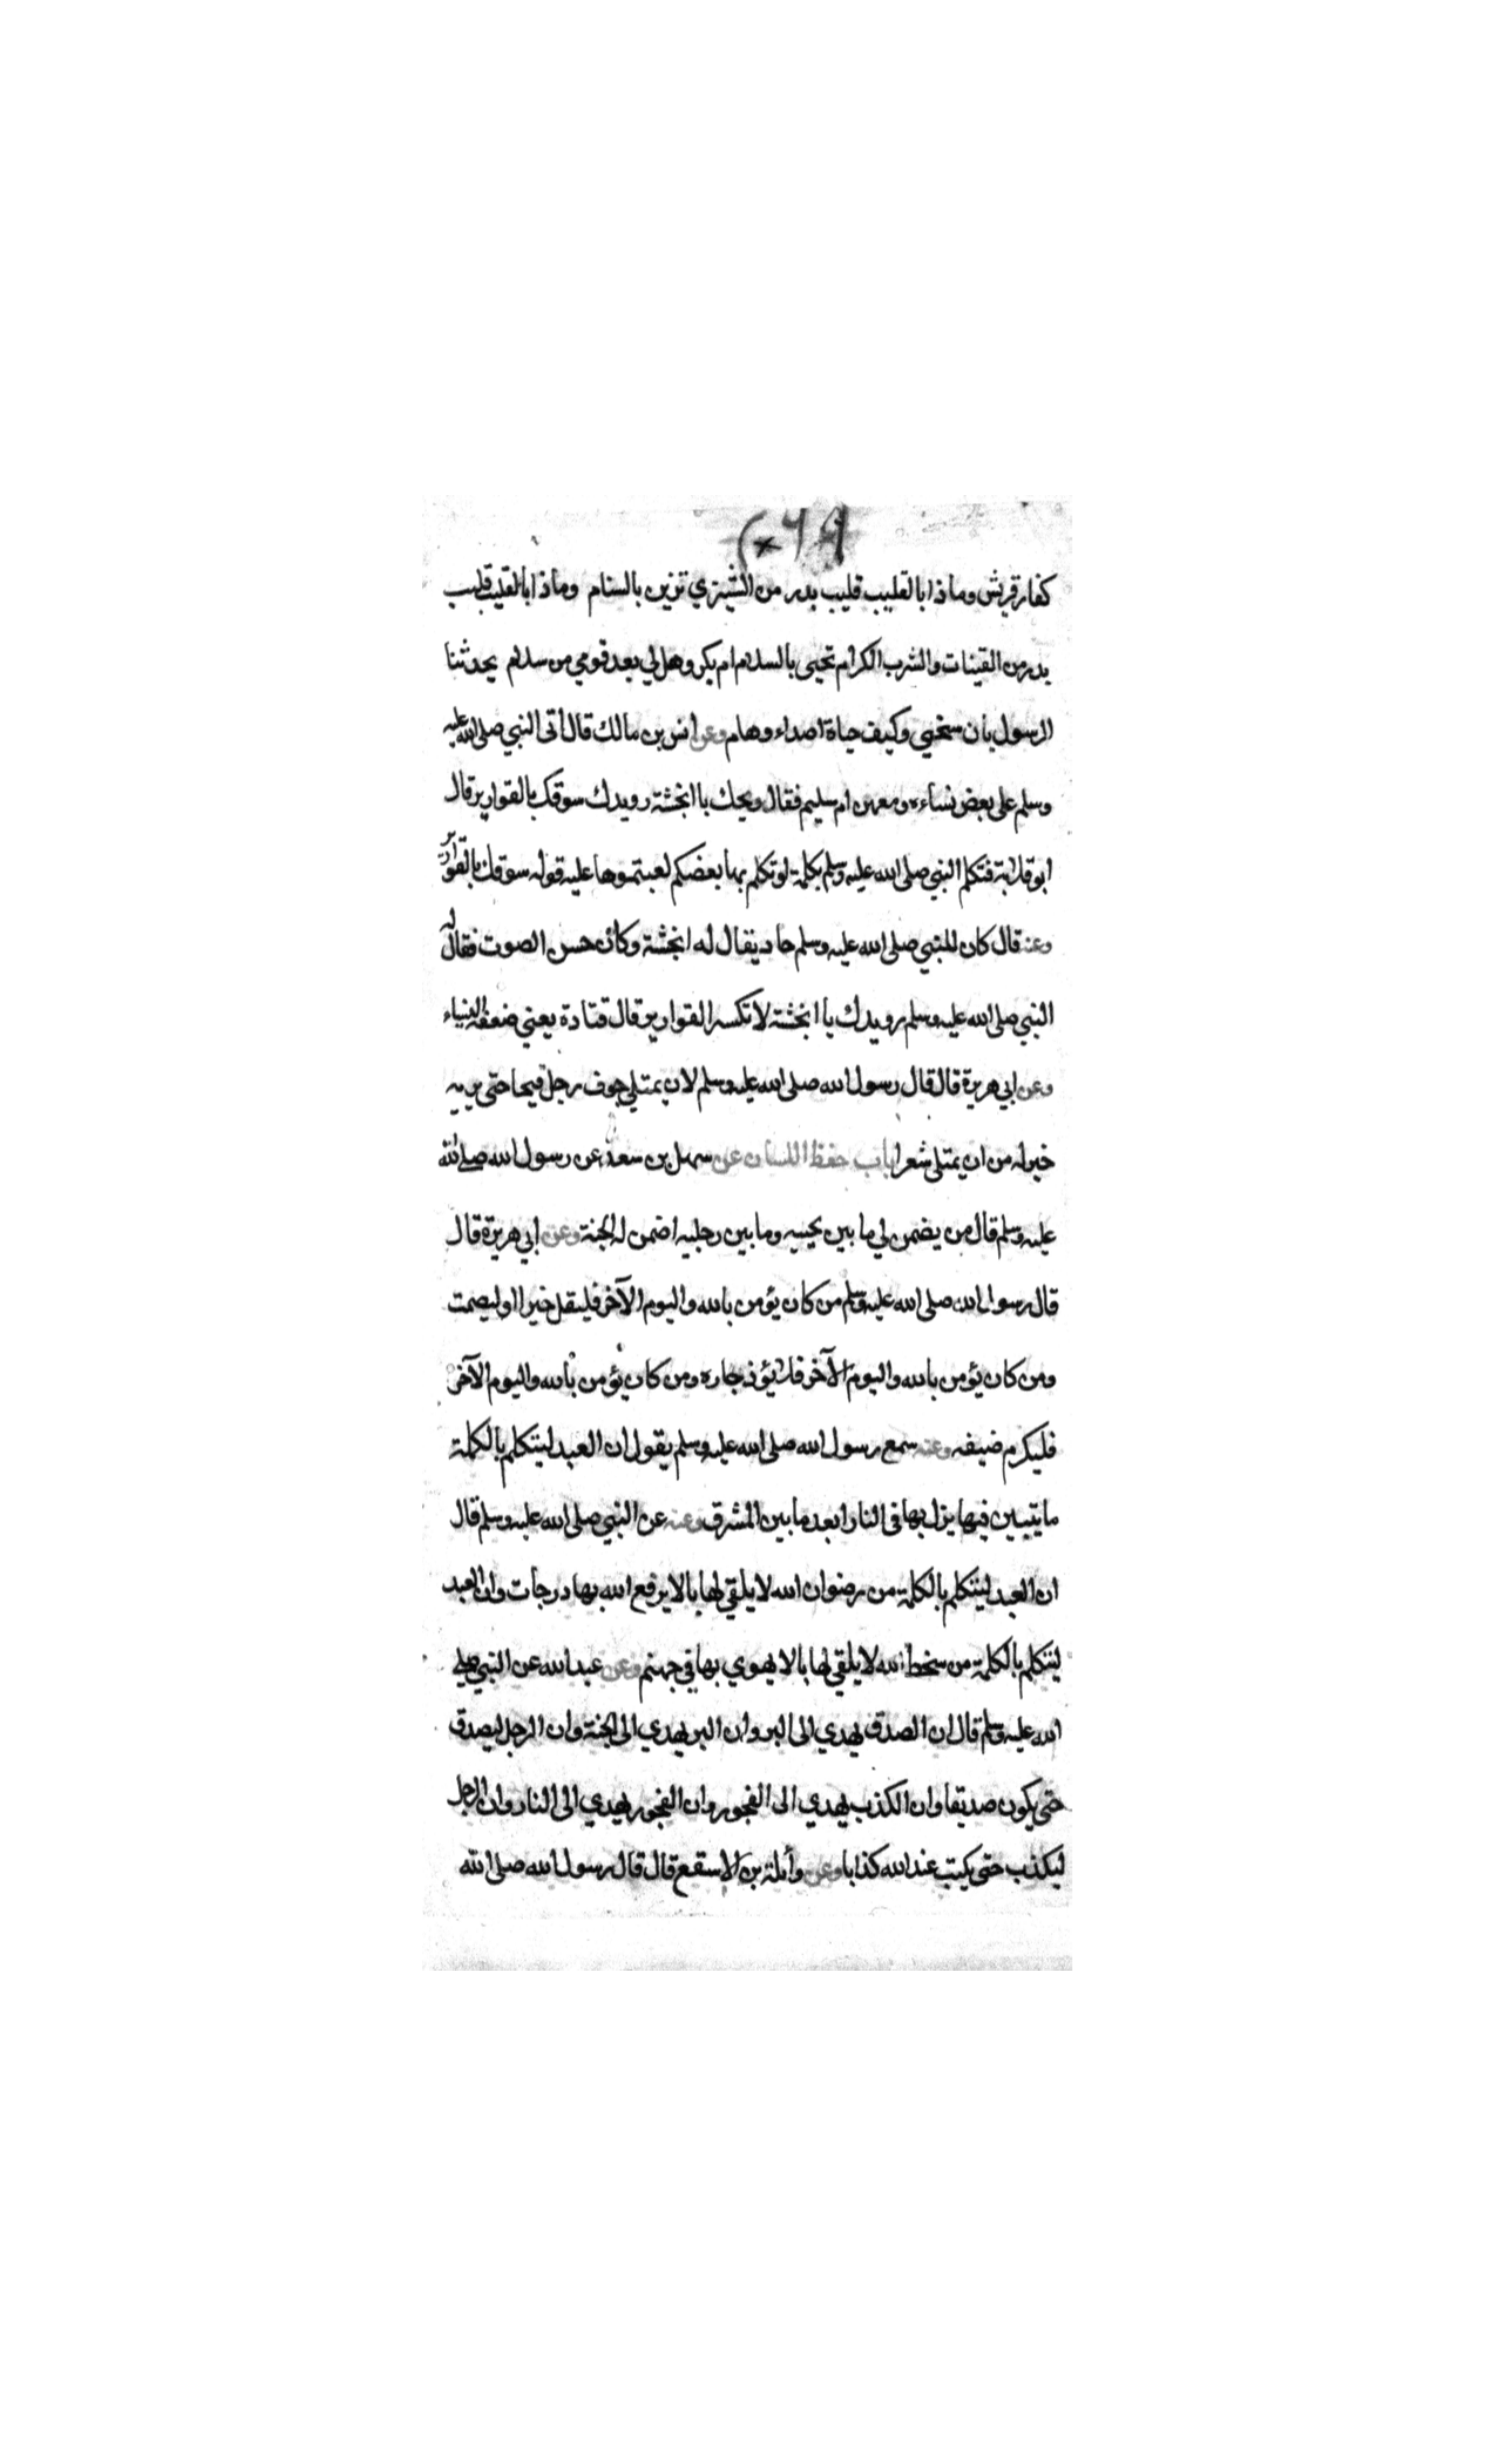 كفار قريش وماذا بالقليب قليب بدر من الشيزي تزين بالسنام وماذا بالقليب قليب
بدر من القينات والشرب الكرام تحيى بالسلام ام بكر وهل لي بعد قومي من سلام يحدثنا
الرسول بان سنحيي وكيف حياة اصداء وهام وعن انس بن مالك قال اتى النبي صلى الله عليه
وسلم على بعض نساءه ومعهن ام سليم فقال ويحك يا انجشة رويدك سوقك بالقوارير قال
ابو قلابة فتكلم النبي صلى الله عليه وسلم بكلمة لو تكلم بها بعضكم لعبتموها عليه قوله سوقك بالقوارير
وعنه قال كان للنبي صلى الله عليه وسلم حاد يقال له انجشة وكان حسن الصوت فقال له
النبي صلى الله عليه وسلم رويدك يا انجشة لا تكسر القوارير قال قتادة يعني ضعفة النساء
وعن ابي هريرة قال قال رسول الله صلى الله عليه وسلم لان يمتلي جوف رجل قيحا حتى يريه
خير له من ان يمتلي شعرا باب حفظ اللسان عن سهل بن سعد عن رسول الله صلى الله
عليه وسلم قال من يضمن لي ما بين لحييه وما بين رجليه اضمن له الجنة وعن ابي هريرة قال
قال رسول الله صلى الله عليه وسلم من كان يؤمن بالله واليوم الآخر فليقل خيرا او ليصمت
ومن كان يؤمن بالله واليوم الآخر فلا يؤذ جاره ومن كان يؤمن بالله واليوم الآخر
فليكرم ضيفه وعنه سمع رسول الله صلى الله عليه وسلم يقول ان العبد ليتكلم بالكلمة
ما يتبين فيها يزل بها في النار ابعد ما بين المشرق وعنه عن النبي صلى الله عليه وسلم قال
ان العبد ليتكلم بالكلمة من رضوان الله لا يلقي لها بالا يرفع الله بها درجات وان العبد
ليتكلم بالكلمة من سخط الله لا يلقي لها بالا يهوي بها في جهنم وعن عبد الله عن النبي صلى
الله عليه وسلم قال ان الصدق يهدي الى البر وان البر يهدي الى الجنة وان الرجل ليصدق
حتى يكون صديقا وان الكذب يهدي الى الفجور وان الفجور يهدي الى النار وان الرجل
ليكذب حتى يكتب عند الله كذابا وعن وأثلة بن الاسقع قال قال رسول الله صلى الله